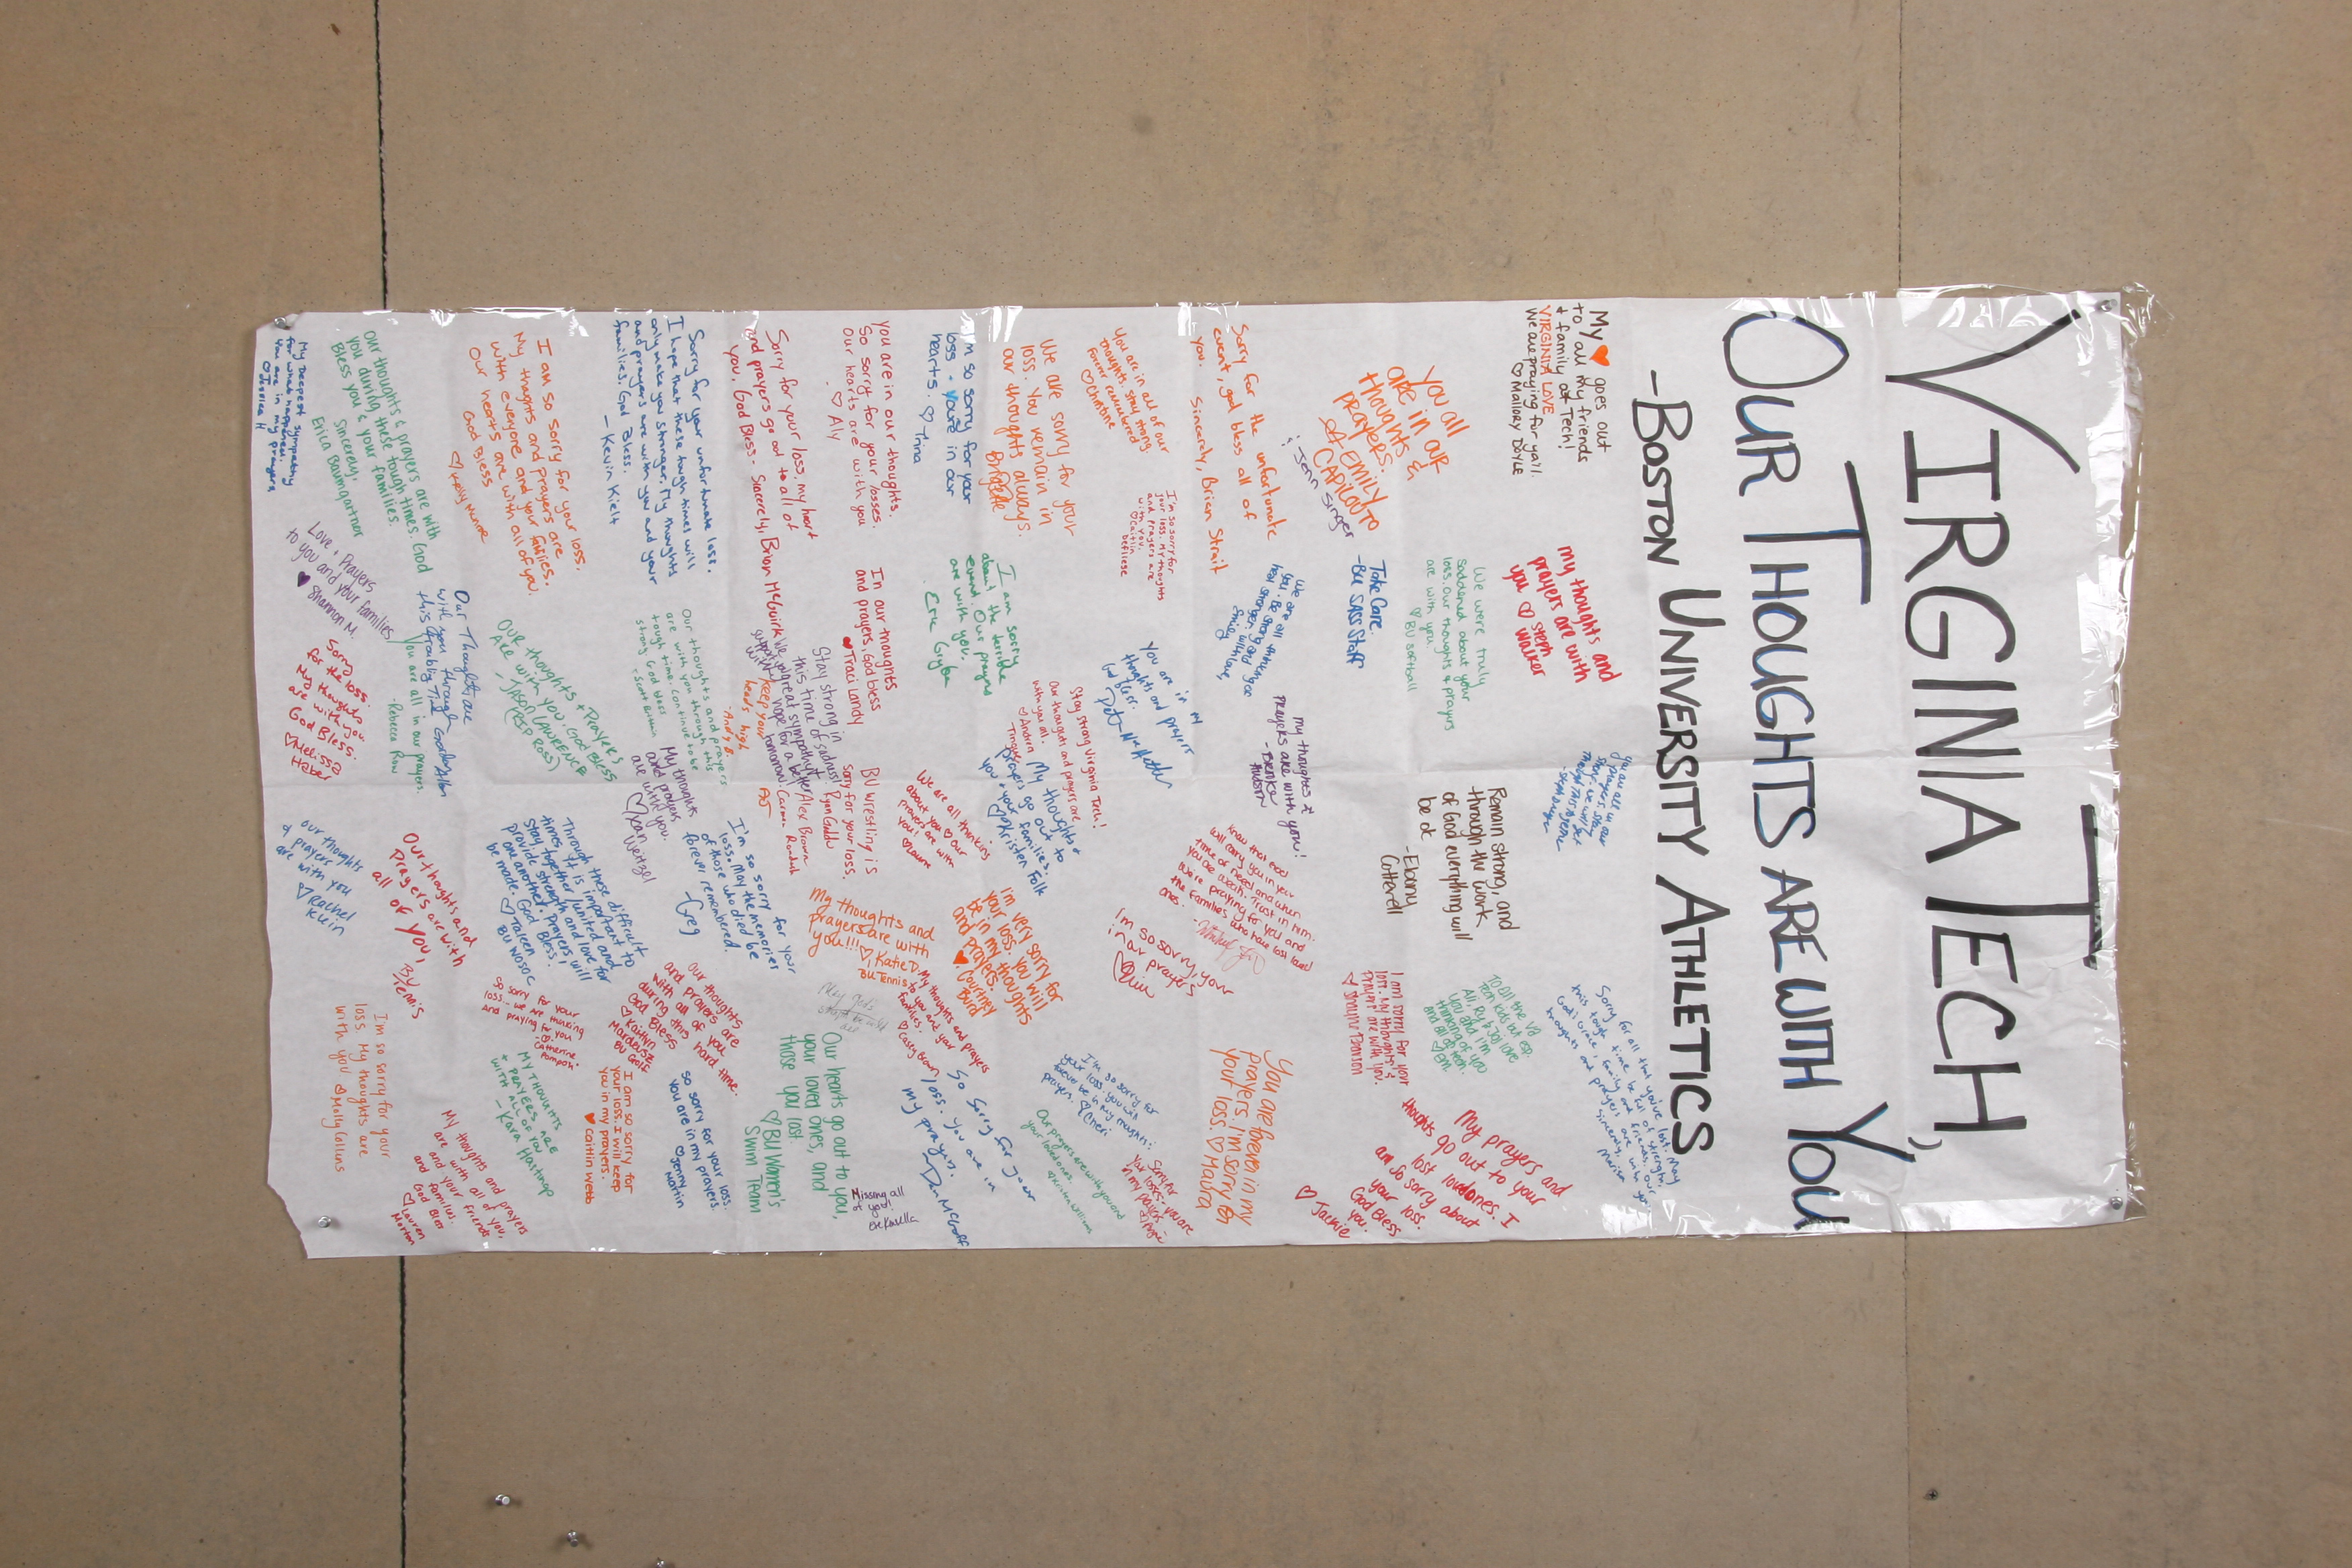 VIRGINIA TECH,
OUR THOUGHTS ARE WITH YOU
-BOSTON UNIVERSITY ATHLETICS
My ♥ goes out
to all my friends
& family at Tech!
VIRGINIA LOVE
We are praying for ya'll
♡ Mallory DOYLE
my thoughts and
prayers are with
you ♡ steph
walker
Sorry for all that you've lost. May
this tough time be full of strength,
God's Grace, family and friends. Our
thoughts and prayers are with you.
Sincerely,
Marisa
You all
are in our
thoughts &
prayers.
EMILY
CAPILOUTO
Jenn Singer
We were truly
saddened about your
loss. Our thoughts & prayers
are with you.
♡ BU softball
Take Care.
-BU SASS Staff
Remain strong, and
through the work
of God everything will
be ok
-Ebony
Cotterell
To all the VA
Tech kids but esp.
Ali, Ry & Jal love
you and I'm
thinking of you
and all of tech.
I am sorry for your
loss. My thoughts &
prayers are with you.
My prayers and
thoughts go out to your
lost loved ones. I
am so sorry about
your loss.
God Bless
you.
♡ Jackie
Sorry for the unfortunate
event, god bless all of
you.
Sincerely, Brian Strait
We are all thinking
you. Be strong and face
my thoughts &
prayers are with you!
Know that God
will carry you in your
time of need and when
you are weak. Trust in him.
We're praying for you and
the families who have lost loved
ones.
I'm so sorry, your
in our prayers
You are forever in my
prayers. I'm sorry for
your loss. ♡ Maura
You are in all of our
thoughts. Stay strong
Forever remembered
♡ Christine
I'm so sorry for
your loss. My thoughts
and prayers are
with you.
♡ Caitlin
DeFliese
You are in my
thoughts and prayers
God bless.
I'm so sorry for
your loss you will
forever be in my thoughts
prayers. ♡ Cheri
Sorry for
your losses. you are
in my prayers
Our prayers are with you and
your loved ones.
Kristen Williams
We are sorry for your
loss. You remain in
our thoughts always.
Brigette
Stay strong Virginia Tech!
Our thoughts and prayers are
with you all.
♡ Andrea
My thoughts &
prayers go out to
you & your families.
♡ Kristen Folk
I'm so sorry for your
loss - you're in our
hearts. ♡ Trina
I am sorry
about the terrible
event. Our prayers
are with you.
We are all thinking
about you ♡ our
prayers are with
you!
I'm very sorry for
your loss. You will
be in my thoughts
and prayers.
♥ Courtney
Bird
So sorry for your
loss. You are in
my prayers.
Dan McGoff
you are in our thoughts.
So sorry for your losses.
Our hearts are with you
♡ Aly
In our thoughts
and prayers, God bless
♥ Traci Landy
BU wrestling is
sorry for your loss.
My thoughts and
prayers are with
you!!! ♡, Katie D.
BU Tennis
My thoughts and prayers
to you and your
families.
♡ Casey Brown
Our hearts go out to you,
your loved ones, and
those you lost.
♡ BU Women's
Swim Team
Missing all
of you!
Sorry for your loss, my heart
and prayers go out to all of
you, God Bless. Sincerely, Brian McGuirk
Stay strong in
this time of sadness!
We great sympathy &
support with hope for a better
tomorrow.
Alex Brown
Keep your
heads high
-Andy B.
Sorry for your unfortunate loss.
I hope that these tough times will
only make you stronger. My thoughts
and prayers are with you and your
families. God Bless.
- Kevin Kielt
Our thoughts and prayers
are with you through this
tough time. Continue to be
strong. God bless
My thoughts
and prayers
are with you.
♡ Jean
Wetzel
I'm so sorry for your
loss. May the memories
of those who died be
forever remembered.
-Greg
our thoughts
and prayers are
with all of you
during this hard time.
God Bless
♥ Kaitlyn
Mardeusz
BU Golf
so sorry for your loss.
You are in my prayers.
♡ Jenny
Martin
I am so sorry for
your loss. I will keep
you in my prayers
♥ Caitlin Webb
I am so sorry for your loss.
My thoughts and prayers are
with everyone and your families.
Our hearts are with all of you.
God Bless
♡ Kelly Munroe
OUR thoughts + Prayers
ARE with you. God Bless
- JASON LAWRENCE
Through these difficult
times it is important to
stay together, united and
provide strength and love for
one another. Prayers will
be made. God Bless.
♡ Traleen
BU WOSOC
So sorry for your
loss - we are thinking
and praying for you
- Catherine
Pomposi
MY THOUGHTS
+ PRAYERS ARE
WITH ALL OF YOU
- Kara Hartnup
Our thoughts & prayers are with
you during these tough times. God
Bless you & your families.
Sincerely,
Erica Baumgartner
Our Thoughts are
with you through
this Troubling Time
You are all in our prayers.
-Rebecca Row
Our thoughts and
prayers are with
all of you,
BU Tennis
My thoughts and prayers
are with all of you,
and your friends
and families.
God Bless
♡ Lauren
Morton
My deepest sympathy
for what happened.
You are in my prayers
♡ Jessica H
Love + Prayers
to you and your families
♥ Shannon M.
Sorry
for the loss.
My thoughts
are with you.
God Bless.
♡ Melissa
Heber
our thoughts
& prayers
are with you
♡ Rachel
Klein
I'm so sorry for your
loss. My thoughts are
with you ♡ Molly Collins